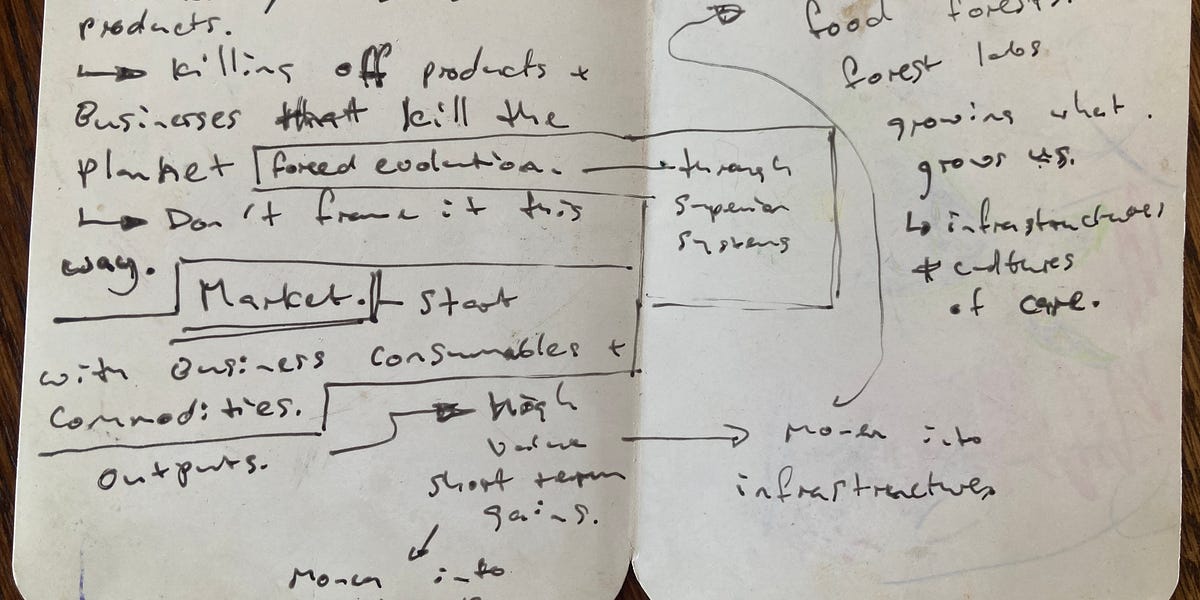 products.
→ killing off products +
Businesses that kill the
planket forced evolution.
→ Don't frame it this
way.
Market. Start
with Business Consumables +
Commodities.
outputs. → High
value
short term
gains.
Money into
→ through
superior
systems
food forests.
forest labs
growing what
grows us.
↳ infrastructures
+ cultures
of care.
→ Money into
infrastructures